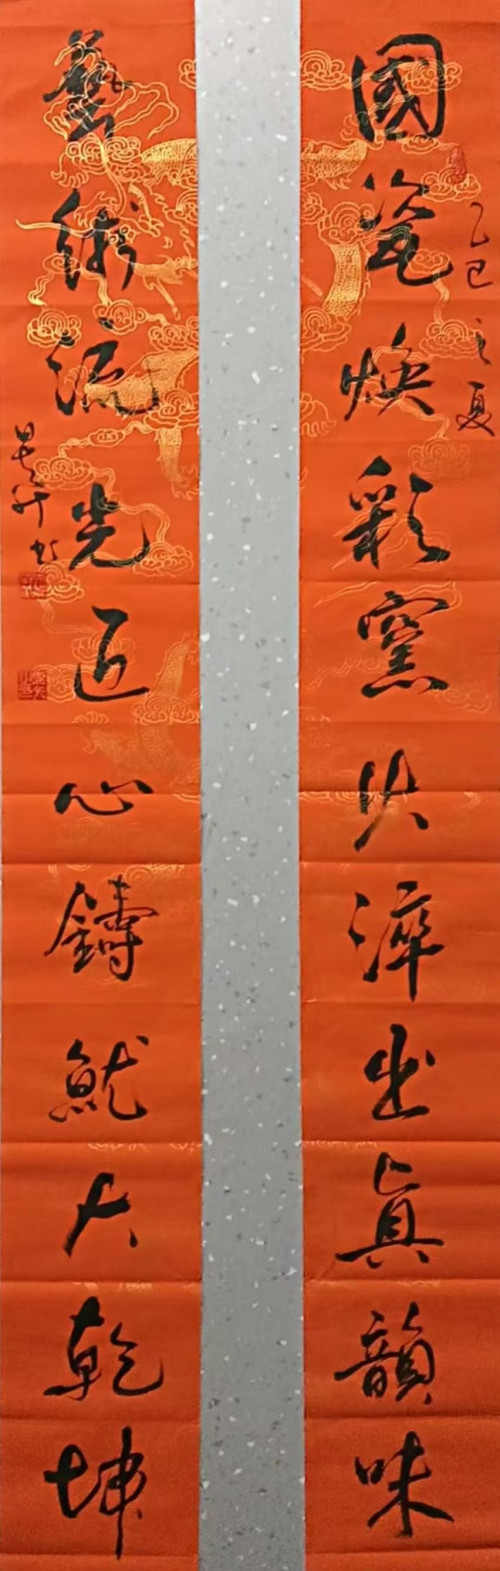 國瓷煥彩窯火淬出真韻味
乙巳之夏
藝術流光匠心鑄就大乾坤